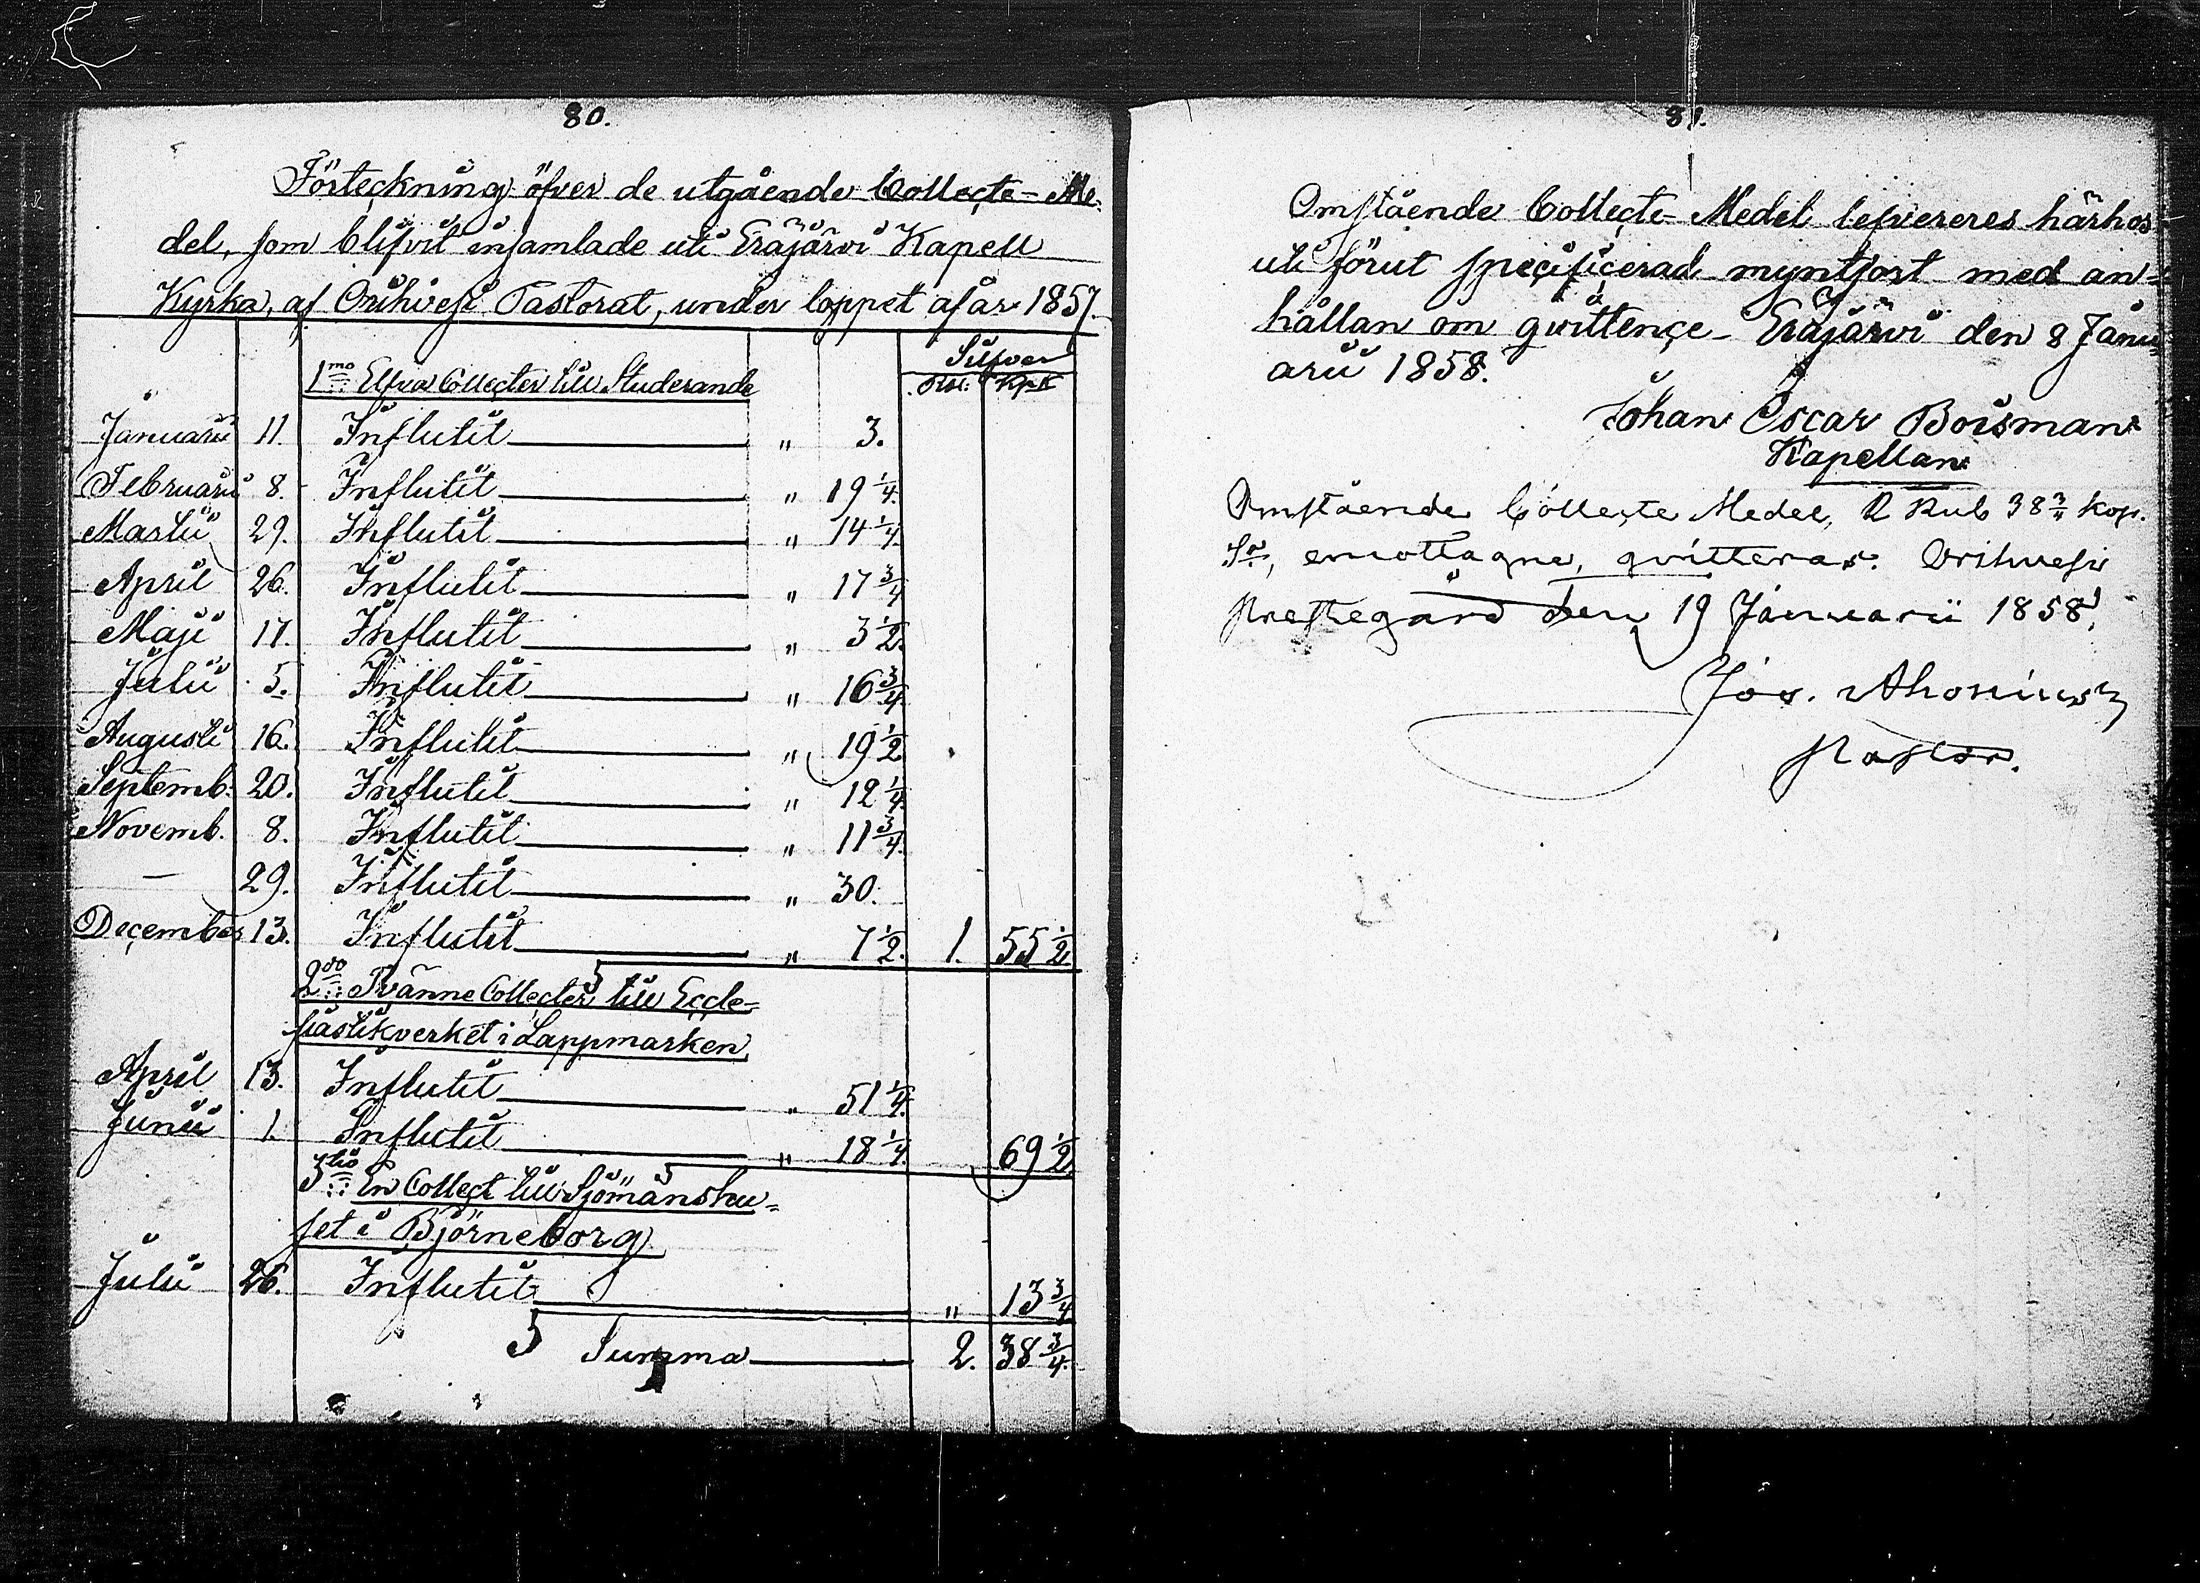 80.
Förteckning öfver de utgående Collecte-Me-
del, som blifvit insamlade uti Eräjärvi Kapell
Kyrka, af Orihvesi Pastorat, under loppet af år 1857.
Silfver
1mo Elfva Collecter till Studerande Rub. Kpk
Januarii 11. Influtit " 3.
Februarii 8. Influtit " 19 1/4.
Martii 29. Influtit " 14 1/4
April 26. Influtit " 17 3/4
Maji 17. Influtit " 3 1/2.
Julii 5. Influtit " 16 3/4.
Augusti 16. Influtit " 19 1/2
Septemb. 20. Influtit " 12 1/4.
Novemb. 8. Influtit " 11 3/4.
— 29. Influtit " 30.
December 13. Influtit " 7 1/2. 1. 55 1/2.
2do Tvänne Collecter till Eccle-
siastikverket i Lappmarken
April 13. Influtit " 51 1/4.
Junii 1. Influtit " 18 1/4. 69 1/2
3tio En Collect till Sjömanshu-
set i Björneborg
Julii 26. Influtit " 13 3/4
Summa 2. 38 3/4.
81.
Omstående Collecte-Medel lefvereres härhos
uti förut specificerad myntsort med an-
hållan om qvittence. Eräjärvi den 8 Janu-
arii 1858.
Johan Oscar Boisman
Kapellan
Omstående Collecte Medel, 2 Rub 38 3/4 kop.
Sr, emottagne, qvitteras. Orihvesi
prestegård den 19 Januarii 1858.
Jos. Ahonius
Pastor.